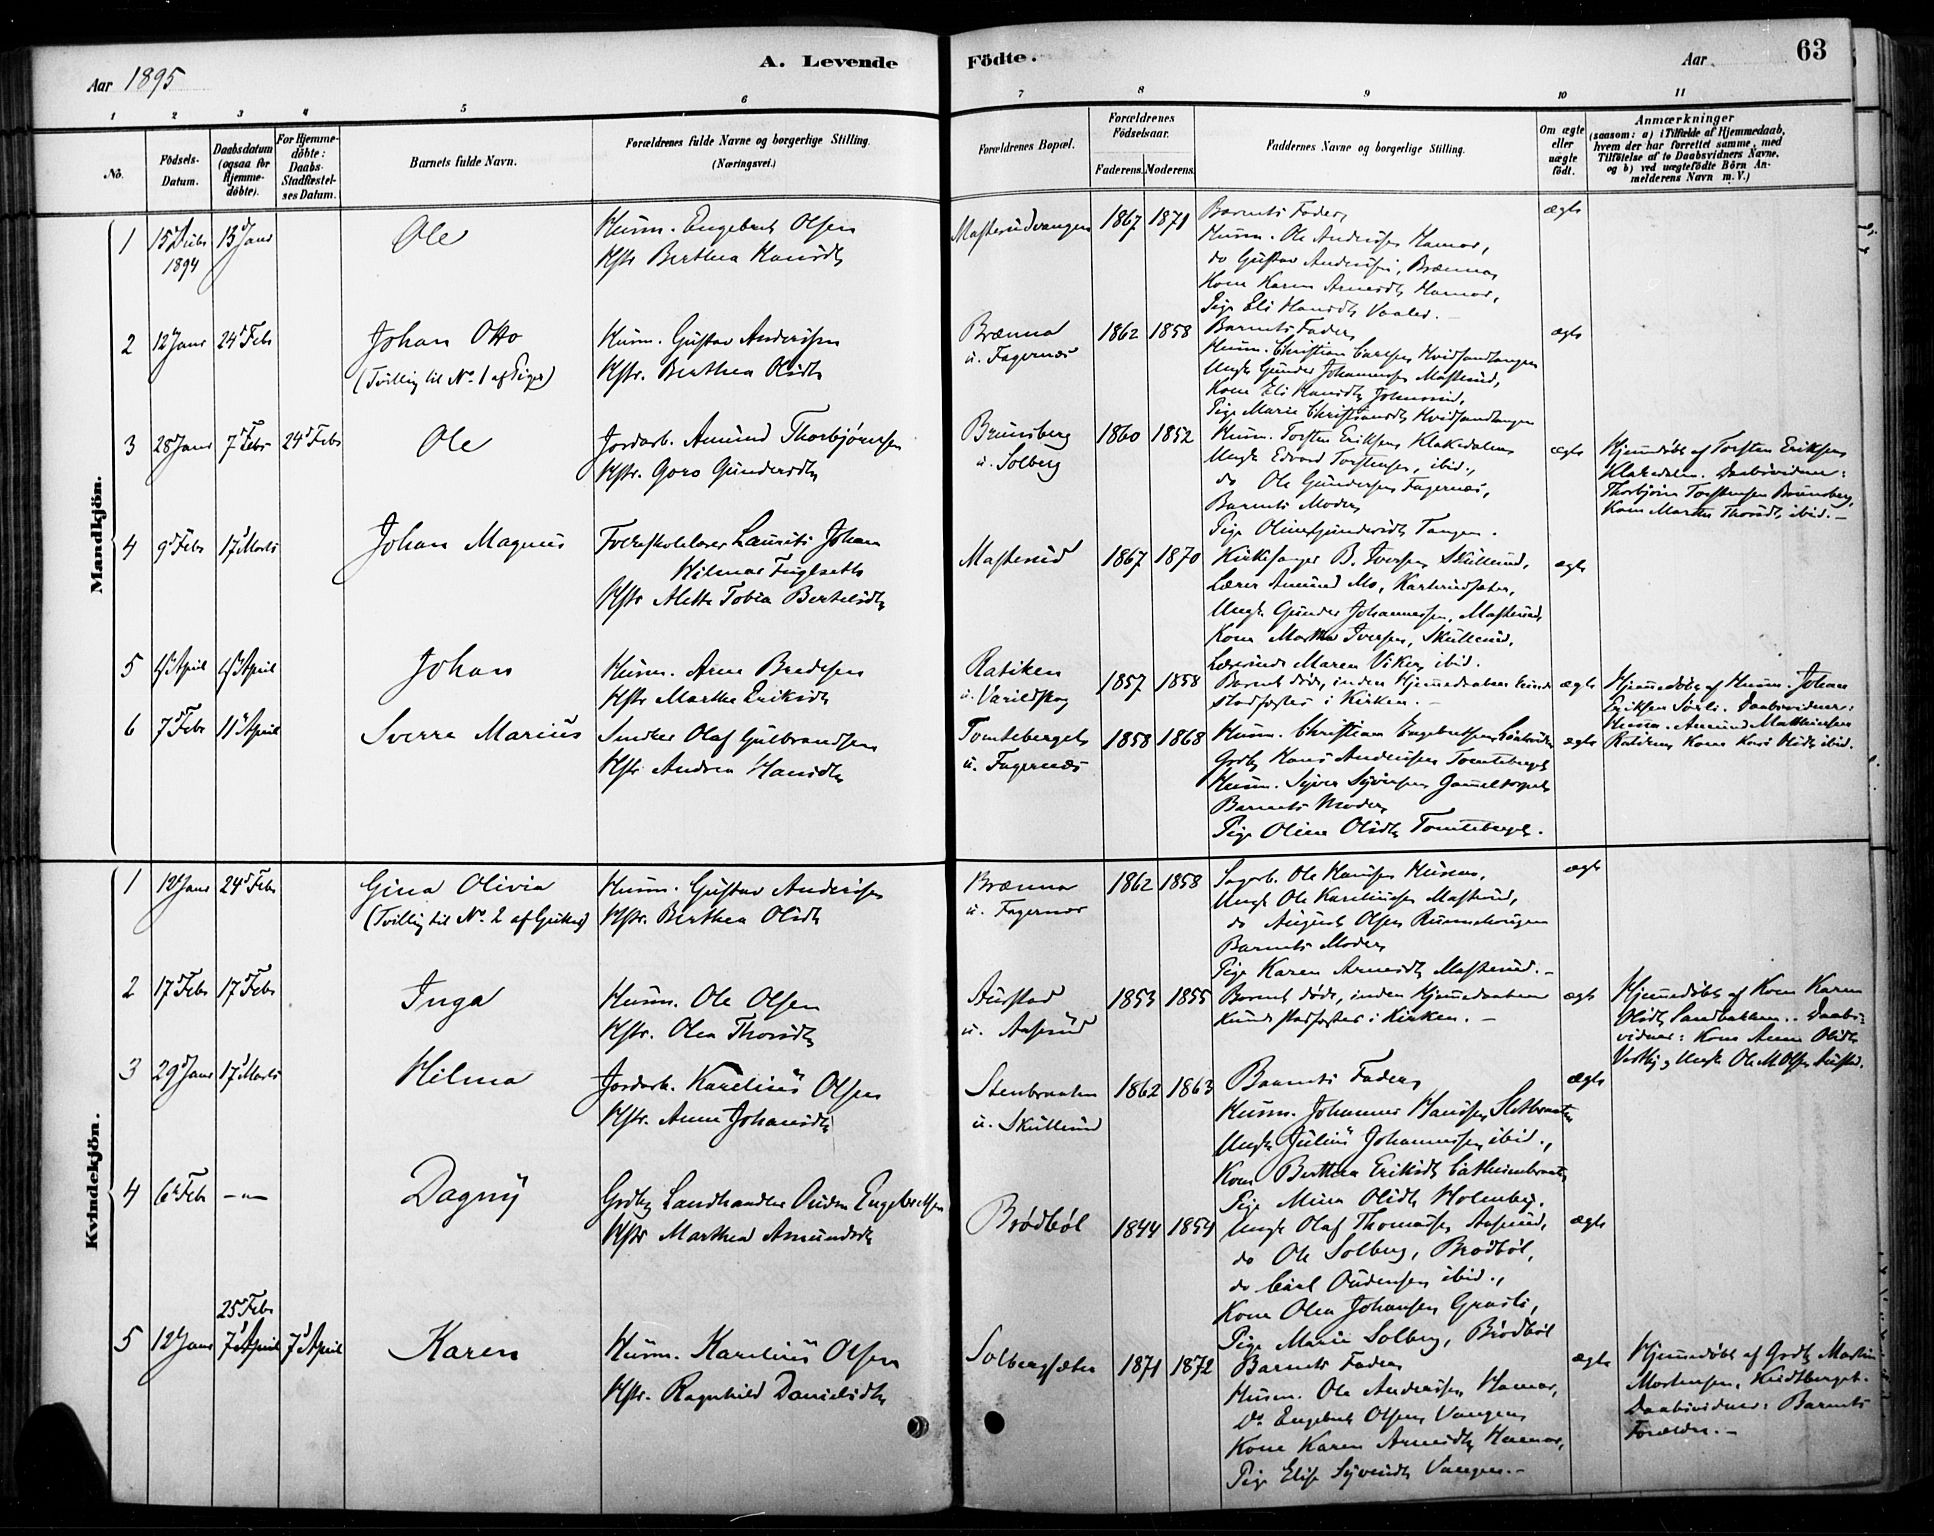 Aar 1895
A. Levende
Födte.
Aar
63
1 2 3 4 5 6 7 8 9 10 11
No.
Födsels-
Datum.
Daabsdatum
(ogsaa for
Hjemme-
döbte).
For Hjemme-
döbte:
Daabs-
Stadfæstel-
ses Datum.
Barnets fulde Navn.
Forældrenes fulde Navne og borgerlige Stilling.
(Næringsvei.)
Forældrenes Bopæl.
Forældrenes
Födselsaar.
Faderens. Moderens.
Faddernes Navne og borgerlige Stilling.
Om ægte
eller
uægte
födt.
Anmærkninger
(saasom: a) i Tilfælde af Hjemmedaab,
hvem der har forrettet samme, med
Tilföielse af to Daabsvidners Navne,
og b) ved uægtefödte Börn An-
melderens Navn m. V.)
Mandkjön.
1 15d Decbr 13d Janr
1894
Ole
Husm. Engebret Olsen
Hstr. Berthea Hansdt.
Mastesrudvangen 1867 1871
Barnets Fader,
Husm. Ole Andersen Hamar,
do Gustav Andersen, Brænna,
Kone Karen Arnesdt. Hamar,
Pige Eli Hansdt. Vaaler. -
ægte
2 12d Janr 24d Febr
Johan Otto
(Tvilling til No. 1 af Piger)
Husm. Gustav Andersen
Hstr. Berthea Olsdt.
Brænna
u. Fagernæs
1862 1858
Barnets Fader,
Husm. Christian Carlsen Hvidsandtangen
Ungk. Gunder Johannessen Masterud,
Kone Eli Hansdt.
Pige Marie Christiansdt. Hvidsandtangen
ægte
3 28d Janr 7d Febr 24d Febr
Ole
Jordarb. Amund Thorbjørnsen
Hstr. Goro Gundersdt.
Brunsberg
u. Solberg
1860 1852
Husm. Torsten Eriksen Klakedalen
Ungk. Edvard Torstensen, ibid.,
do Ole Gundersen Fagernæs,
Barnets Moder,
Pige Oline Gundersdt. Tangen.
ægte
Hjemmedøbt af Torsten Eriksen
Klakedalen. Daabsvidner:
Thorbjørn Torstensen Brunsberg,
Kone Marthe Thorsdt. ibid. -
4 9d Febr 17d Marts
Johan Magnus
Folkeskolelærer Laurits Johan
Hilmar Fuglseth
Hstr. Alette Tobia Bertelsdt.
Masterud 1867 1870
Kirkesanger B. Iversen Skullerud,
Lærer Amund Mo, Karterudsæter,
Ungk. Gunder Johannessen, Masterud,
Kone Martha Iversen, Skullerud,
Lærerinde Maren Viker, ibid.
ægte
5 April April
Johan
Husm. Arne Bredesen
Hstr. Marthe Eriksdt.
Ratiken
u. Varildskog
1857 1858
Barnet døde, inden Hjemmedaaben kunde
stadfæstes i Kirken. -
ægte
Hjemmedøbt af Husm. Johan
Eriksen Sørli. Daabsvidner:
Husm. Amund Matthiesen
Ratiken, Kone Kari Olsdt. ibid.
6 7d Febr 11d April
Sverre Marius
Snedker Olaf Gulbrandsen
Hstr. Andrea Hansdt.
Tomteberget
u. Fagernæs
1858 1868
Husm. Christian Engebretsen
Grdbr. Hans Andersen Tomteberget
Husm. Syver Syversen Gammeltorpet
Barnets Moder,
Pige Oline Olsdt. Tomteberget.
ægte
Kvindekjön.
1 12d Janr 24d Febr
Gina Olivia
(Tvilling til No. 2 af Gutter)
Husm. Gustav Andersen
Hstr. Berthea Olsdt.
Brænna
u. Fagernæs
1862 1858
Sagarb. Ole Hansen
Ungk. Ole Kareliussen Masterud,
do August Olsen
Barnets Moder,
Pige Karen Arnesdt. Masterud. -
ægte
2 17d Febr 17d Febr
Inga
Husm. Ole Olsen
Hstr. Olea Thorsdt.
Aurstad
u. Aaserud
1853 1855
Barnet døde, inden Hjemmedaaben
kunde stadfæstes i Kirken. -
ægte
Hjemmedøbt af Kone Karen
Olsdt. Sandbakken. Daabs-
vidner: Kone Anne Olsdt.
Vestby, Ungk. Ole M. Olsen Aurstad.
3 29d Janr 17d Marts
Hilma
Jordarb. Karelius Olsen
Hstr. Anne Johansdt.
Stenbraaten
u. Skullerud
1862 1863
Barnets Fader,
Husm. Johannes Hansen Sletbraaten
Ungk. Julius Johannessen ibid.,
Kone Berthea Eriksdt.
Pige Mina Olsdt. Holmberg.
ægte
4 6te Febr -"-
Dagny
Grdbr. Landhandler Ouden Engebretsen
Hstr. Marthea Amundsdt.
Brødbøl 1844 1854
Ungk. Olaf Thomassen Aaserud,
do Ole Solberg, Brødbøl,
do Carl Oudensen ibid.,
Kone Olea Johansen Grasli,
Pige Marie Solberg, Brødbøl
ægte
25d Febr
5 12d Janr 7d April 7d April
Karen
Husm. Karelius Olsen
Hstr. Ragnhild Danielsdt.
Solbergsæter 1871 1872
Barnets Fader,
Husm. Ole Andersen, Hamar,
Do Engebret Olsen Vangen
Kone Karen Arnesdt. Hamar,
Pige Elise Syversdt. Vangen. -
ægte
Hjemmedøbt af Grdbr. Martin
Mortensen,
Daabsvidner: Barnets
Forældre. -